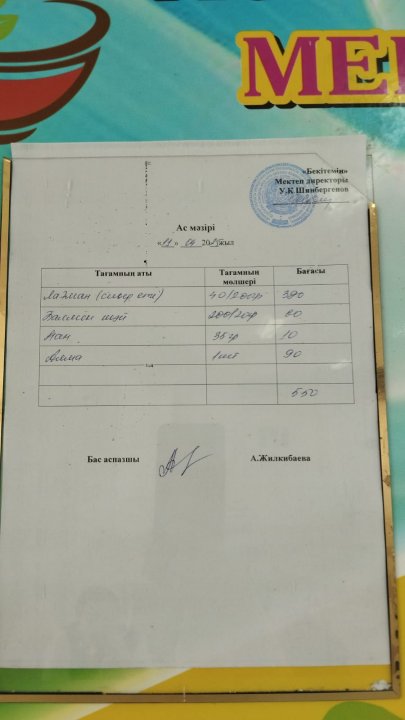 МЕ
«Бекітемін»
Мектеп директоры
У.К Шинбергенов
Ас мәзірі
жыл
Тағамның аты Тағамның мөлшері Бағасы
Лагман (сиыр еті) 40/200гр 390
шай 200/20гр 60
Нан 35 гр 10
Алма 1шт 90
550
Бас аспазшы А.Жилкибаева